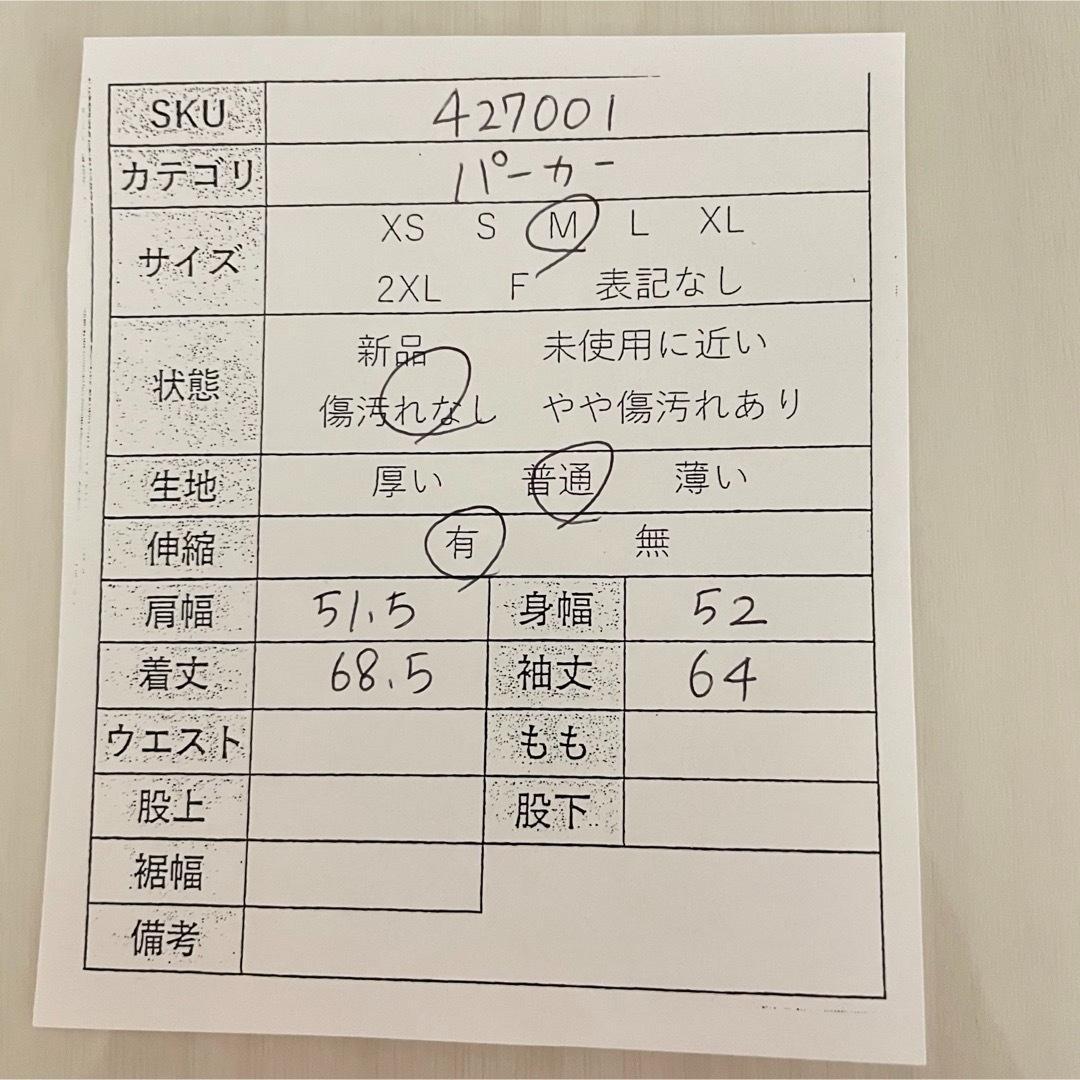 SKU 427001
カテゴリ パーカー
サイズ XS S M L XL
2XL F 表記なし
状態 新品 未使用に近い
傷汚れなし やや傷汚れあり
生地 厚い 普通 薄い
伸縮 有 無
肩幅 51.5 身幅 52
着丈 68.5 袖丈 64
ウエスト もも
股上 股下
裾幅
備考